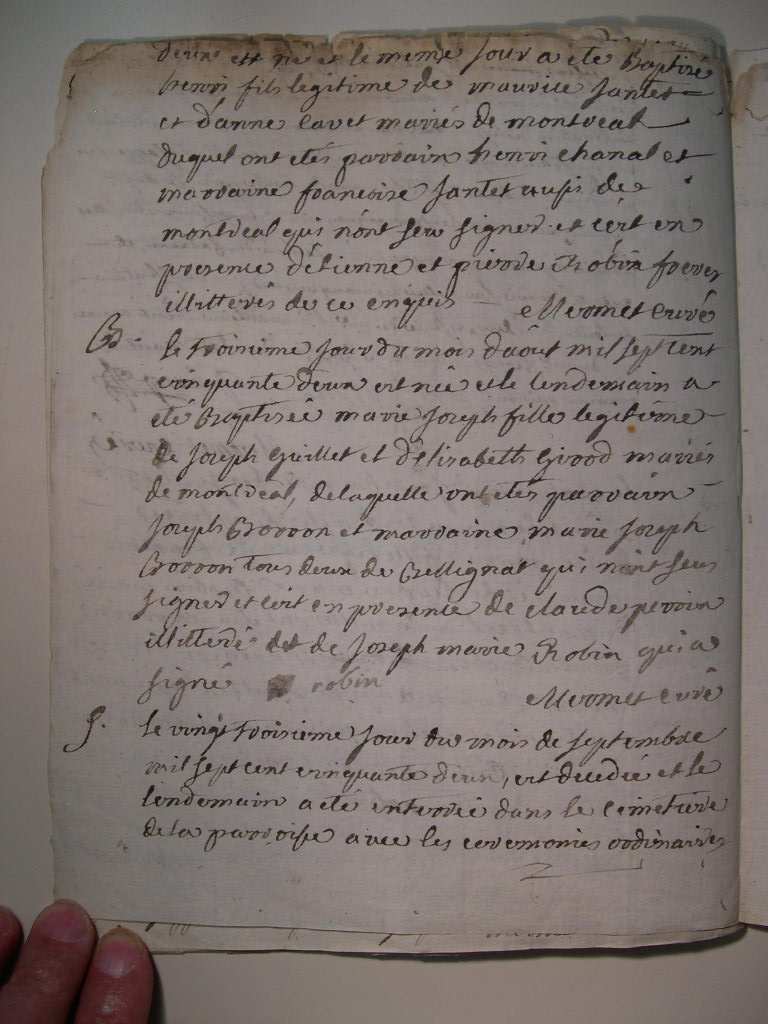 deux est né et le meme jour a eté Baptisé
henri fils legitime de maurice jantet
et d'anne cavet mariés de montreal
duquel ont etés parrain henri chanal et
marraine francoise jantet aussi de
montreal qui n'ont seu signer et c'ert en
presence d'etienne et pierre Robin freres
illitterés de ce enquis Mermet curé
B.
le troisieme jour du mois d'aôut mil sept cent
cinquante deux est née et le lendemain a
eté Baptisée marie joseph fille legitime
de joseph Guillet et d'elisabeth Girod mariés
de montréal, de laquelle ont etés parrain
joseph Borron et marraine marie joseph
Borron tous deux de Bellignat qui n'ont seus
signer et c'ert en presence de claude perrin
illitteré et de joseph marie Robin qui a
signé robin Mermet curé
S.
le vingt troisieme jour du mois de septembre
mil sept cent cinquante deux, est decedée et le
lendemain a eté enterrée dans le cimetiere
de la parroisse avec les ceremonies ordinaires